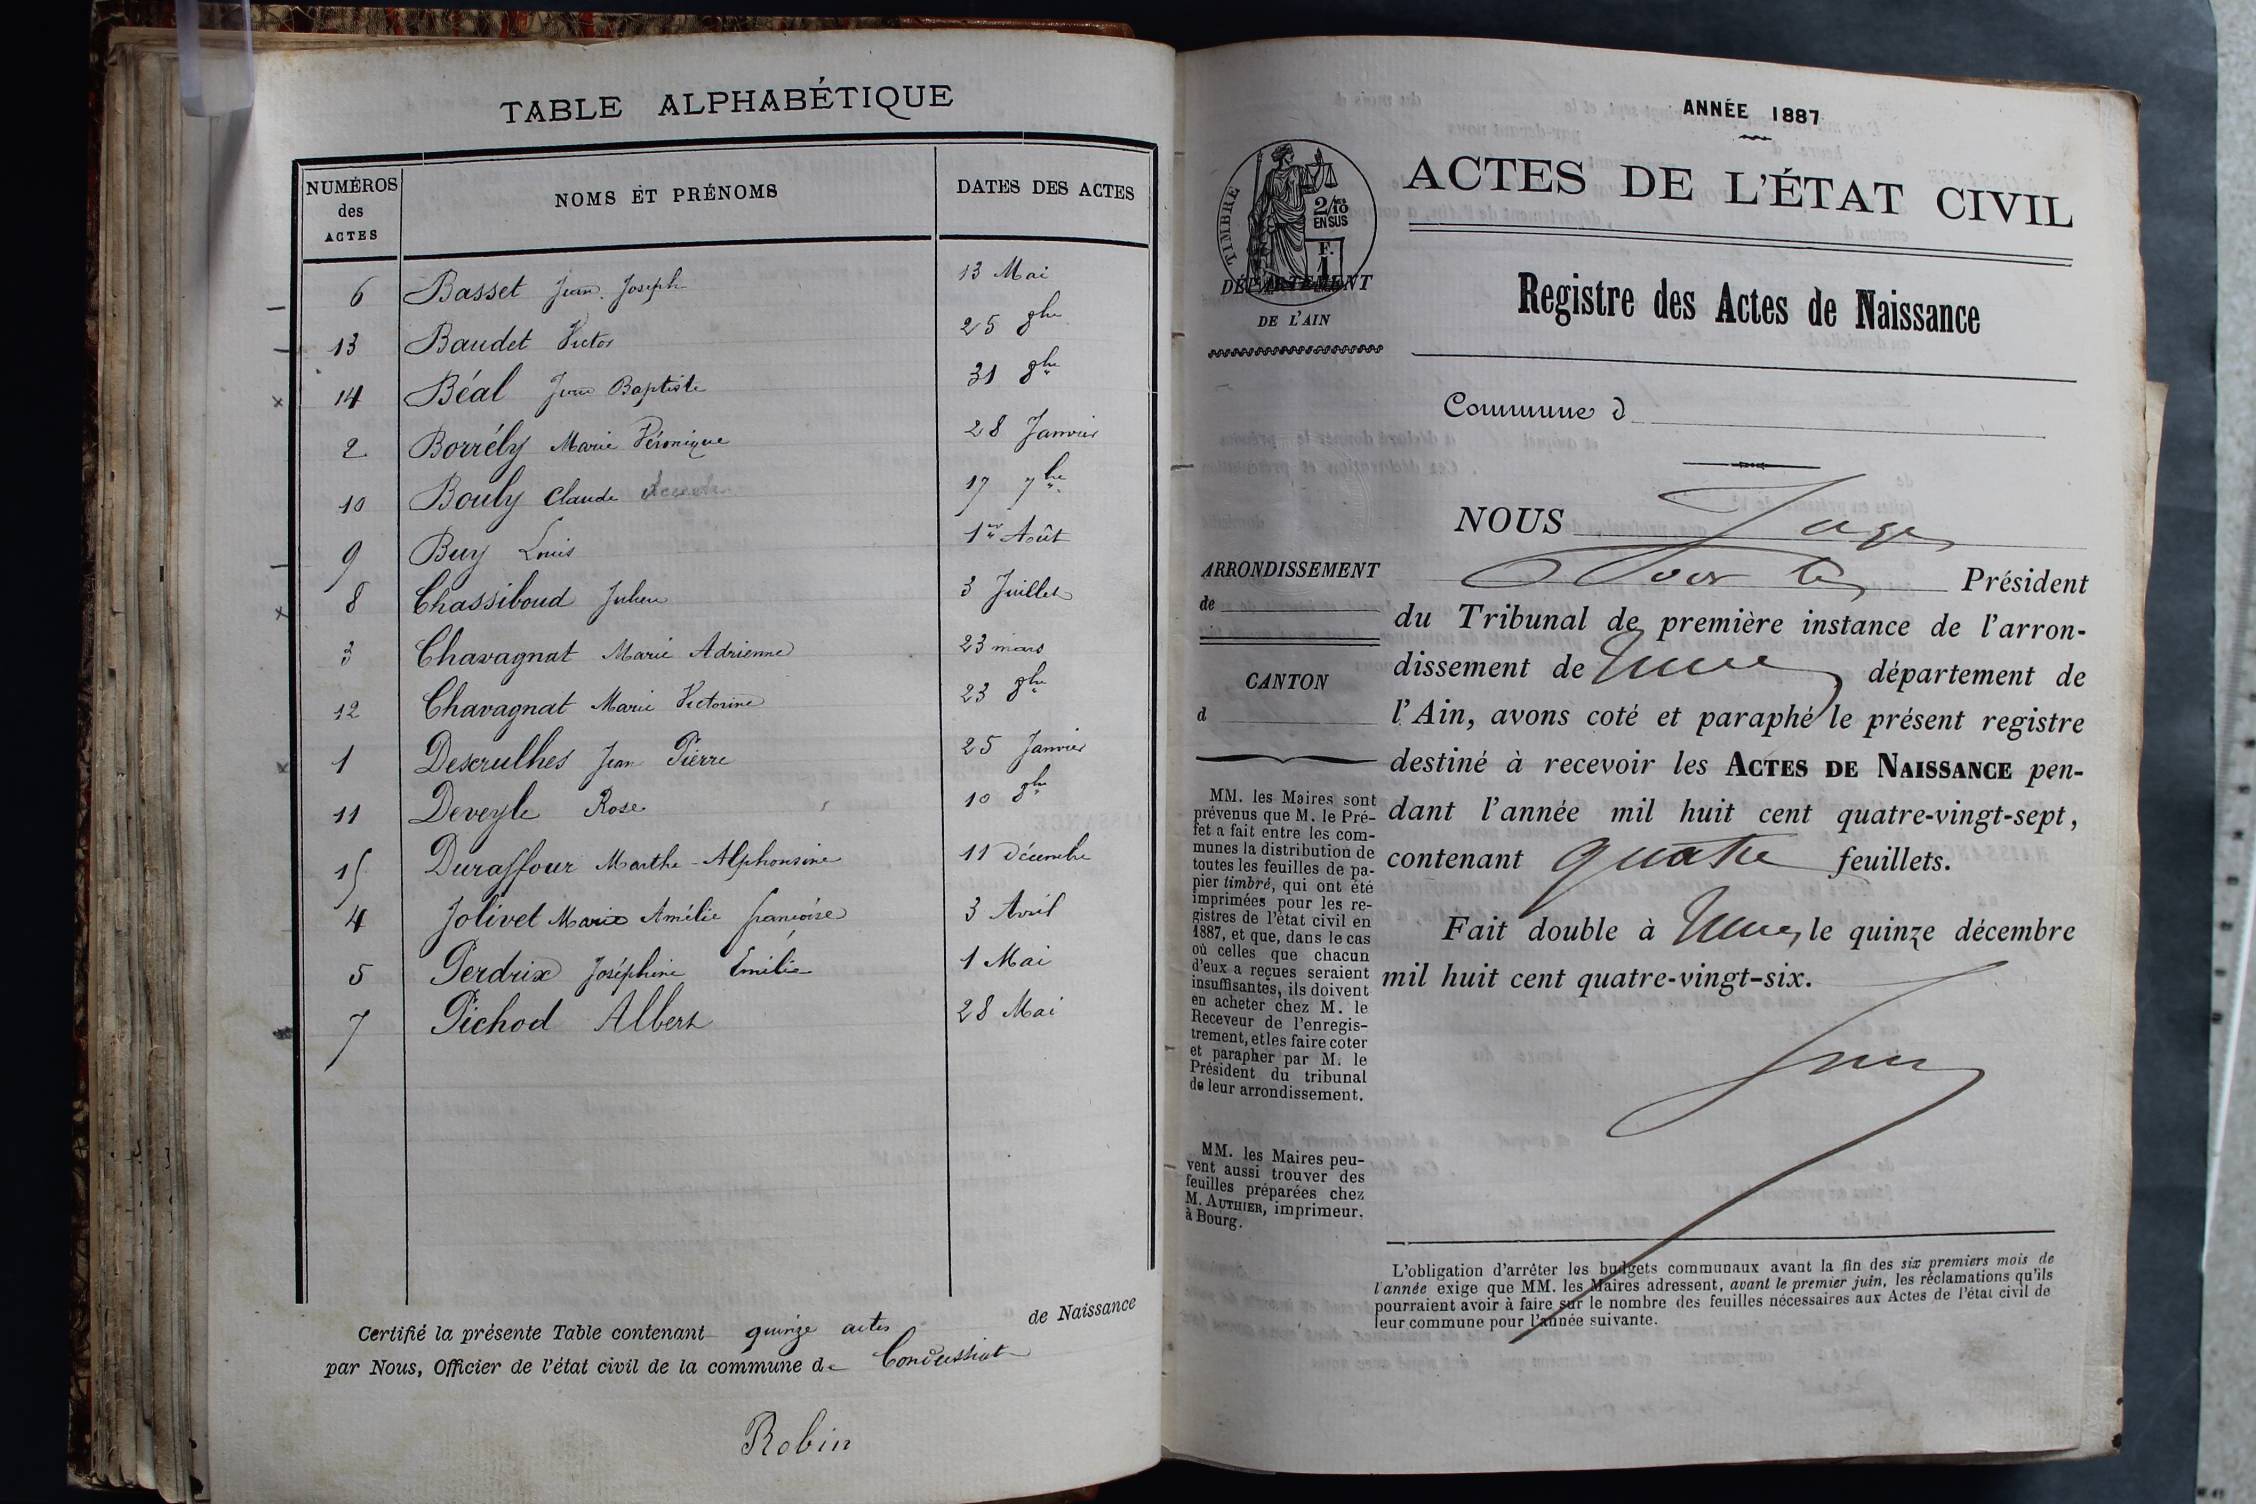 TABLE ALPHABÉTIQUE
NUMÉROS des ACTES NOMS ET PRÉNOMS DATES DES ACTES
6 Basset Jean Joseph 13 Mai
13 Baudet Victor 25 8bre
14 Béal Jean Baptiste 31 8bre
2 Borrély Marie Véronique 28 Janvier
10 Bouly Claude 17 7bre
9 Buy Louis 1er Août
8 Chassiboud Julien 3 Juillet
3 Chavagnat Marie Adrienne 23 mars
12 Chavagnat Marie Victorine 23 8bre
1 Descrulhes Jean Pierre 25 Janvier
11 Deveyle Rose 10 8bre
15 Duraffour Marthe-Alphonsine 11 Décembre
4 Jolivet Marie Amélie françoise 3 Avril
5 Perdrix Joséphine Emélie 1 Mai
7 Pichod Albert 28 Mai
Certifié la présente Table contenant quinze actes de Naissance
par Nous, Officier de l'état civil de la commune de Condeissiat
Robin
ANNÉE 1887
ACTES DE L'ÉTAT CIVIL
TIMBRE
2/10 EN SUS
F. 1
DÉPARTEMENT
DE L'AIN
Registre des Actes de Naissance
Commune d
NOUS Juge
Président
ARRONDISSEMENT
de
CANTON
d
du Tribunal de première instance de l'arron-
dissement de département de
l'Ain, avons coté et paraphé le présent registre
destiné à recevoir les ACTES DE NAISSANCE pen-
dant l'année mil huit cent quatre-vingt-sept,
contenant quatre feuillets.
Fait double à le quinze décembre
mil huit cent quatre-vingt-six.
MM. les Maires sont
prévenus que M. le Pré-
fet a fait entre les com-
munes la distribution de
toutes les feuilles de pa-
pier timbré, qui ont été
imprimées pour les re-
gistres de l'état civil en
1887, et que, dans le cas
où celles que chacun
d'eux a reçues seraient
insuffisantes, ils doivent
en acheter chez M. le
Receveur de l'enregis-
trement, et les faire coter
et parapher par M. le
Président du tribunal
de leur arrondissement.
MM. les Maires peu-
vent aussi trouver des
feuilles préparées chez
M. AUTHIER, imprimeur.
à Bourg.
L'obligation d'arrêter les budgets communaux avant la fin des six premiers mois de
l'année exige que MM. les Maires adressent, avant le premier juin, les réclamations qu'ils
pourraient avoir à faire sur le nombre des feuilles nécessaires aux Actes de l'état civil de
leur commune pour l'année suivante.